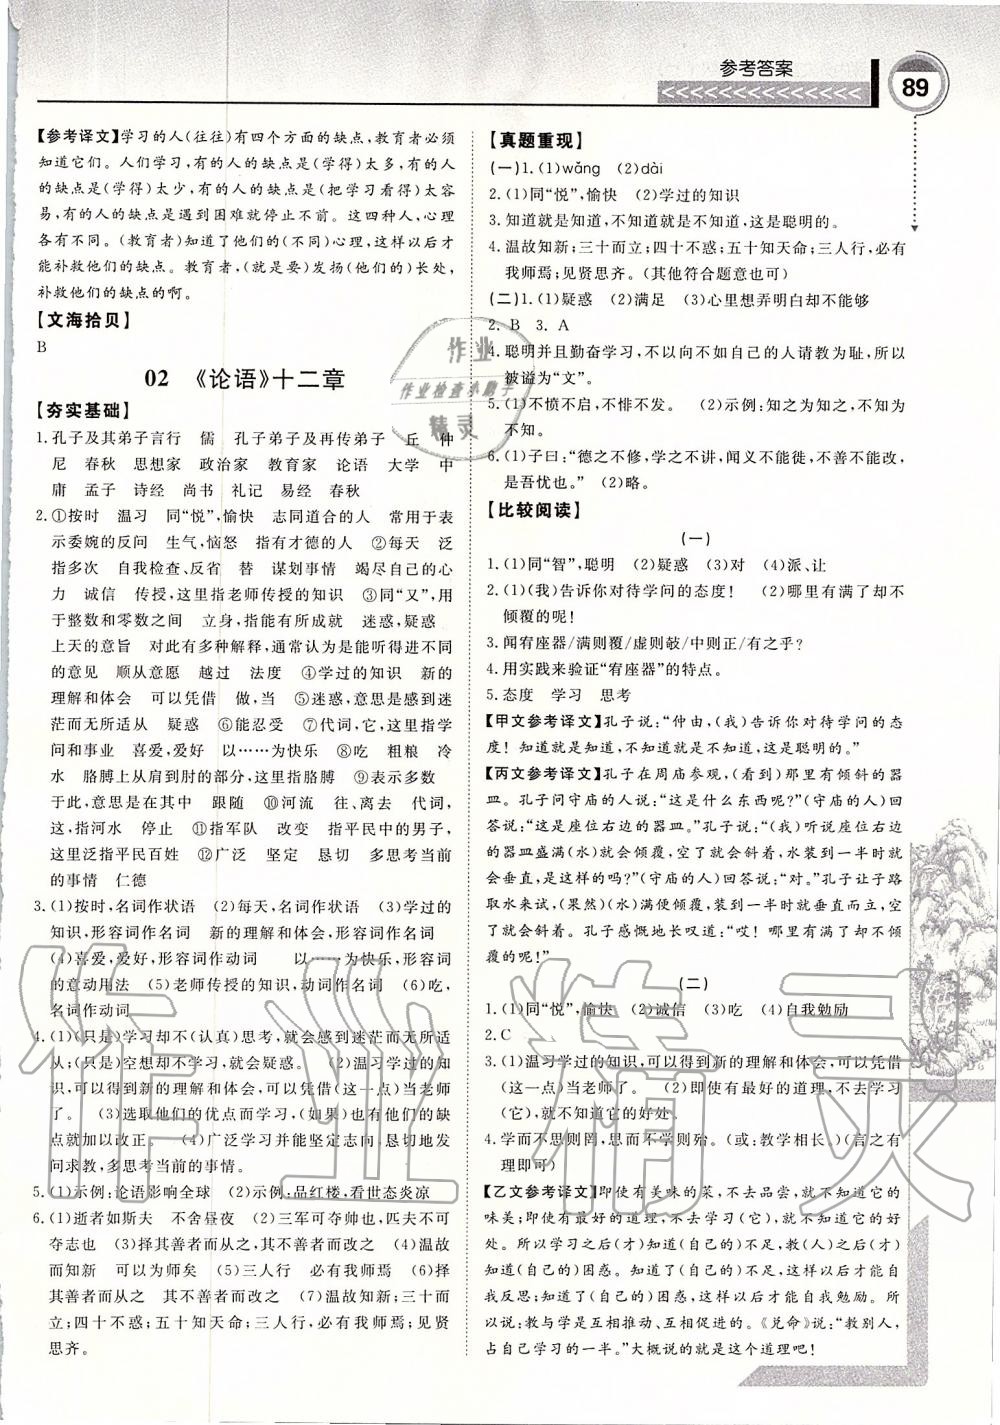 参考答案
89
【参考译文】学习的人(往往)有四个方面的缺点,教育者必须
知道它们。人们学习,有的人的缺点是(学得)太多,有的人
的缺点是(学得)太少,有的人的缺点是(把学习看得)太容
易,有的人的缺点是遇到困难就停止不前。这四种人,心理
各有不同。(教育者)知道了他们的(不同)心理,这样以后才能
补救他们的缺点。教育者,(就是要)发扬(他们的)长处,
补救他们的缺点的啊。
【文海拾贝】
B
02 《论语》十二章
【夯实基础】
1.孔子及其弟子言行 儒 孔子弟子及再传弟子 丘 仲
尼 春秋 思想家 政治家 教育家 论语 大学 中
庸 孟子 诗经 尚书 礼记 易经 春秋
2.①按时 温习 同“悦”,愉快 志同道合的人 常用于表
示委婉的反问 生气,恼怒 指有才德的人 ②每天 泛
指多次 自我检查、反省 替 谋划事情 竭尽自己的心
力 诚信 传授,这里指老师传授的知识 ③同“又”,用
于整数和零数之间 立身,指能有所成就 迷惑,疑惑
上天的意旨 对此有多种解释,通常认为是能听得进不同
意见 顺从意愿 越过 法度 ④学过的知识 新的
理解和体会 可以凭借 做,当 ⑤迷惑,意思是感到迷
茫而无所适从 疑惑 ⑥能忍受 ⑦代词,它,这里指学
问和事业 喜爱,爱好 以……为快乐 ⑧吃 粗粮 冷
水 胳膊上从肩到肘的部分,这里指胳膊 ⑨表示多数
于此,意思是在其中 跟随 ⑩河流 往、离去 代词,
这,指河水 停止 ⑪指军队 改变 指平民中的男子,
这里泛指平民百姓 ⑫广泛 坚定 恳切 多思考当前
的事情 仁德
3.(1)按时,名词作状语 (2)每天,名词作状语 (3)学过的
知识,形容词作名词 新的理解和体会,形容词作名词
(4)喜爱,爱好,形容词作动词 以……为快乐,形容词
的意动用法 (5)老师传授的知识,动词作名词 (6)吃,
名词作动词
4.(1)(只是)学习却不(认真)思考,就会感到迷茫而无所适
从;(只是)空想却不学习,就会疑惑。 (2)温习学过的知
识,可以得到新的理解和体会,可以凭借(这一点)当老师
了。 (3)选取他们的优点而学习,(如果)也有他们的缺
点就加以改正。 (4)广泛学习并能坚定志向,恳切地发
问求教,多思考当前的事情。
5.(1)示例:论语影响全球 (2)示例:品红楼,看世态炎凉
6.(1)逝者如斯夫 不舍昼夜 (2)三军可夺帅也,匹夫不可
夺志也 (3)择其善者而从之,其不善者而改之 (4)温故
而知新 可以为师矣 (5)三人行 必有我师焉 (6)择
其善者而从之 其不善者而改之 (7)温故知新;三十而
立;四十不惑;五十知天命;三人行,必有我师焉;见贤
思齐。
【真题重现】
(一)1.(1)wǎng (2)dài
2.(1)同“悦”,愉快 (2)学过的知识
3.知道就是知道,不知道就是不知道,这是聪明的。
4.温故知新;三十而立;四十不惑;五十知天命;三人行,必有
我师焉;见贤思齐。(其他符合题意也可)
(二)1.(1)疑惑 (2)满足 (3)心里想弄明白却不能够
2. B 3. A
4.聪明并且勤奋学习,不以向不如自己的人请教为耻,所以
被谥为“文”。
5.(1)不愤不启,不悱不发。 (2)示例:知之为知之,不知为
不知。
6.(1)子曰:“德之不修,学之不讲,闻义不能徙,不善不能改,
是吾忧也。” (2)略。
【比较阅读】
(一)
1.(1)同“智”,聪明 (2)疑惑 (3)对 (4)派、让
2.(1)(我)告诉你对待学问的态度! (2)哪里有满了却不
倾覆的呢!
3.闻宥座器/满则覆/虚则敧/中则正/有之乎?
4.用实践来验证“宥座器”的特点。
5.态度 学习 思考
【甲文参考译文】孔子说:“仲由,(我)告诉你对待学问的态
度!知道就是知道,不知道就是不知道,这是聪明的。”
【丙文参考译文】孔子在周庙参观,(看到)那里有倾斜的器
皿。孔子问守庙的人说:“这是什么东西呢?”(守庙的人)回
答说:“这是座位右边的器皿。”孔子说:“(我)听说座位右边
的器皿盛满(水)就会倾覆,空了就会斜着,水装到一半时就
会垂直,是这样的吗?”(守庙的人)回答说:“对。”孔子让子路
取水来试,(果然)(水)满了就倾覆,水到一半时就垂直而立,空了
就会斜着。孔子感慨地长叹道:“哎!哪里有满了却不倾
覆的呢!”
(二)
1.(1)同“悦”,愉快 (2)诚信 (3)吃 (4)自我勉励
2.C
3.(1)温习学过的知识,可以得到新的理解和体会,可以凭借
(这一点)当老师了。 (2)即使有最好的道理,不去学习
(它),就不知道它的好处。
4.学而不思则罔,思而不学则殆。(或:教学相长。)(言之有
理即可)
【乙文参考译文】即使有美味的菜,不去品尝,就不知道它的
味美;即使有最好的道理,不去学习(它),就不知道它的好
处。所以学习之后(才)知道(自己的)不足,教(人)之后(才)
知道(自己的)困惑。知道了(自己的)不足,这样以后才能自
我反思;知道了(自己的)困惑,这样以后才能自我勉励。所
以说:教与学是互相推动、互相促进的。《兑命》说:“教别人,
占自己学习的一半。”大概说的就是这个道理吧!
作业
作业检查小助手
精灵
作业精灵